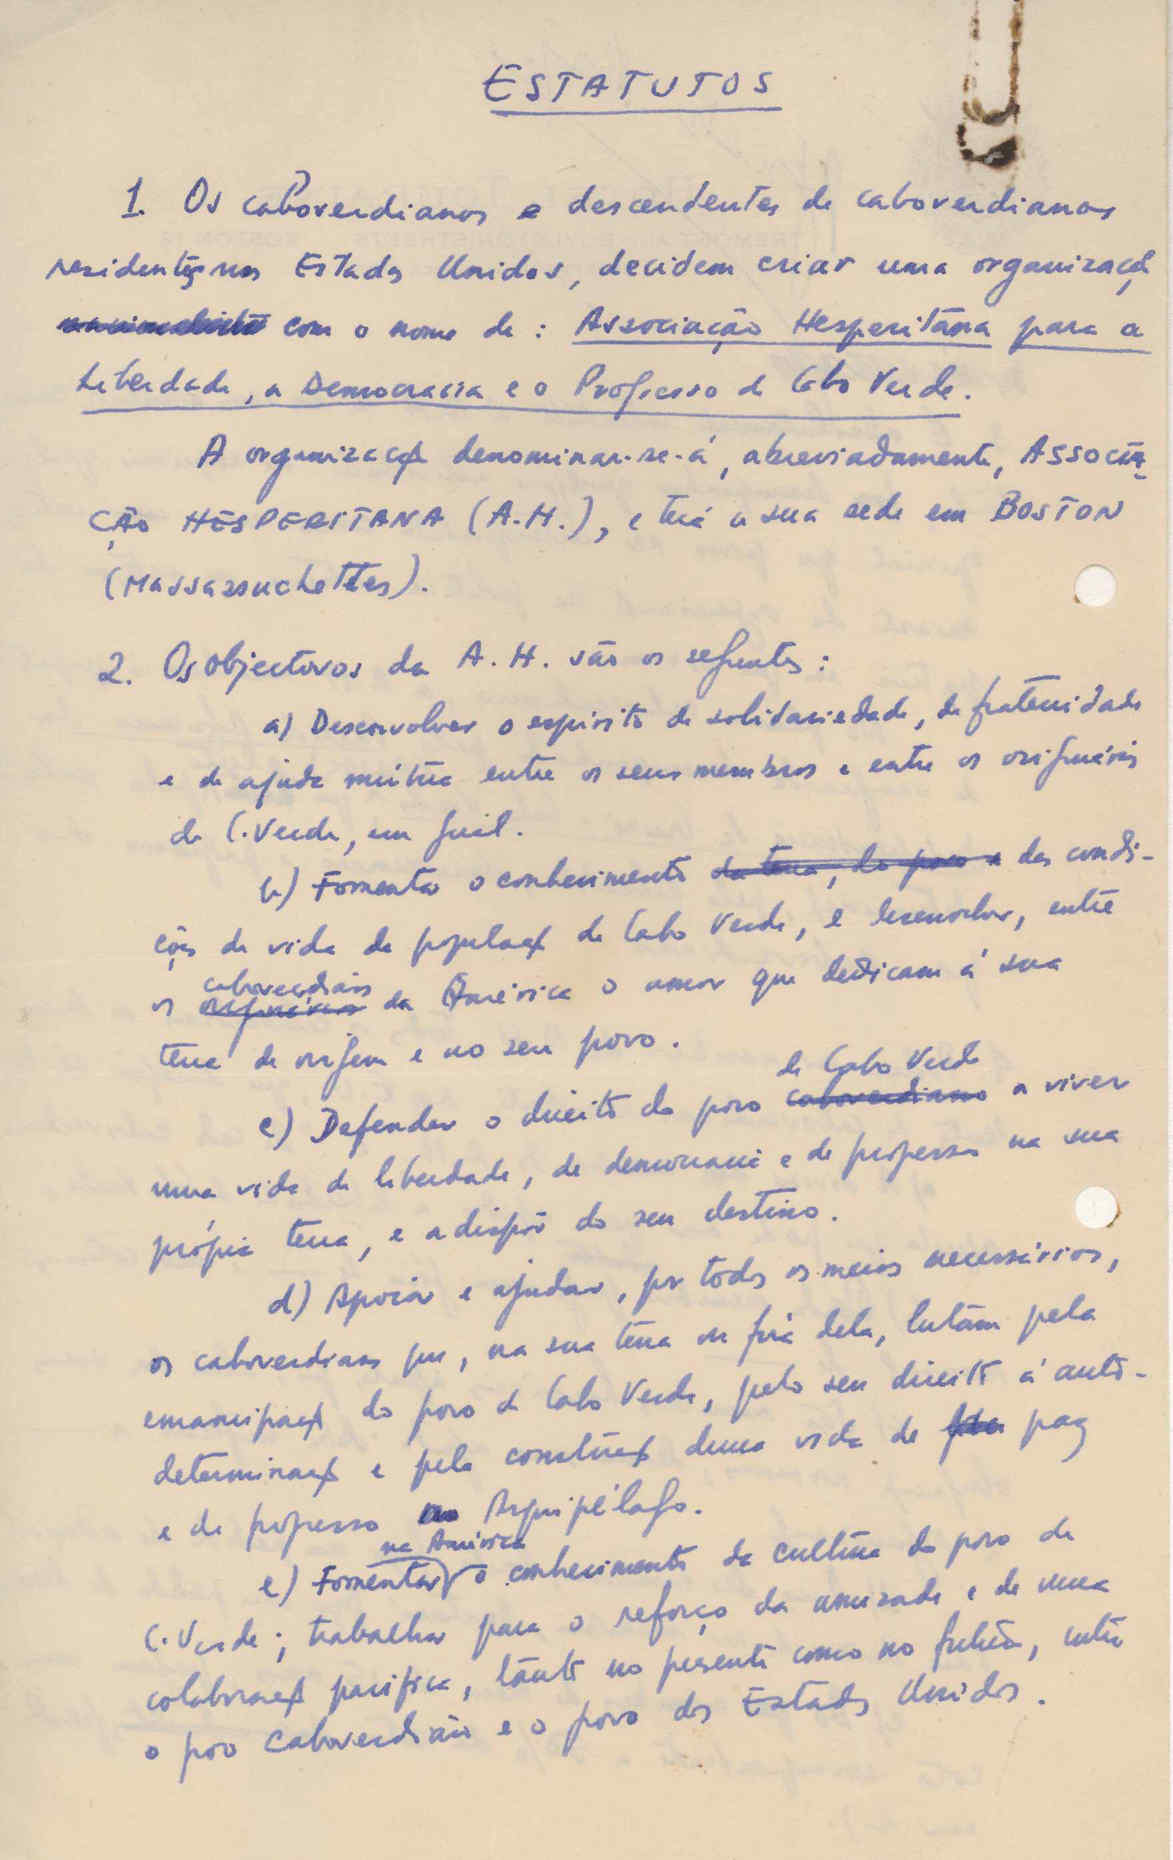 ESTATUTOS
1. Os caboverdianos e descendentes de caboverdianos
residentes nos Estados Unidos, decidem criar uma organização
com o nome de: Associação Hesperitana para a
Liberdade, a Democracia e o Progresso de Cabo Verde.
A organização denominar-se-á, abreviadamente, ASSOCIA-
ÇÃO HESPERITANA (A.H.), e terá a sua sede em BOSTON
(Massassuchettes).
2. Os objectivos da A.H. são os seguintes:
a) Desenvolver o espírito de solidariedade, de fraternidade
e de ajuda mútua entre os seus membros e entre os originários
de C. Verde, em geral.
b) Fomentar o conhecimento da terra, do povo e das condi-
ções de vida da população de Cabo Verde, e desenvolver, entre
caboverdianos
os originários da América o amor que dedicam à sua
terra de origem e ao seu povo.
de Cabo Verde
c) Defender o direito do povo caboverdiano a viver
uma vida de liberdade, de democracia e de progresso na sua
própria terra, e a dispôr do seu destino.
d) Apoiar e ajudar, por todos os meios necessários,
os caboverdianos que, na sua terra ou fora dela, lutam pela
emancipação do povo de Cabo Verde, pelo seu direito à auto-
determinação e pela construção duma vida de paz
e de progresso no Arquipélago.
na América
e) Fomentar o conhecimento da cultura do povo de
C. Verde; trabalhar para o reforço da amizade e de uma
colaboração pacífica, tanto no presente como no futuro, entre
o povo caboverdiano e o povo dos Estados Unidos.